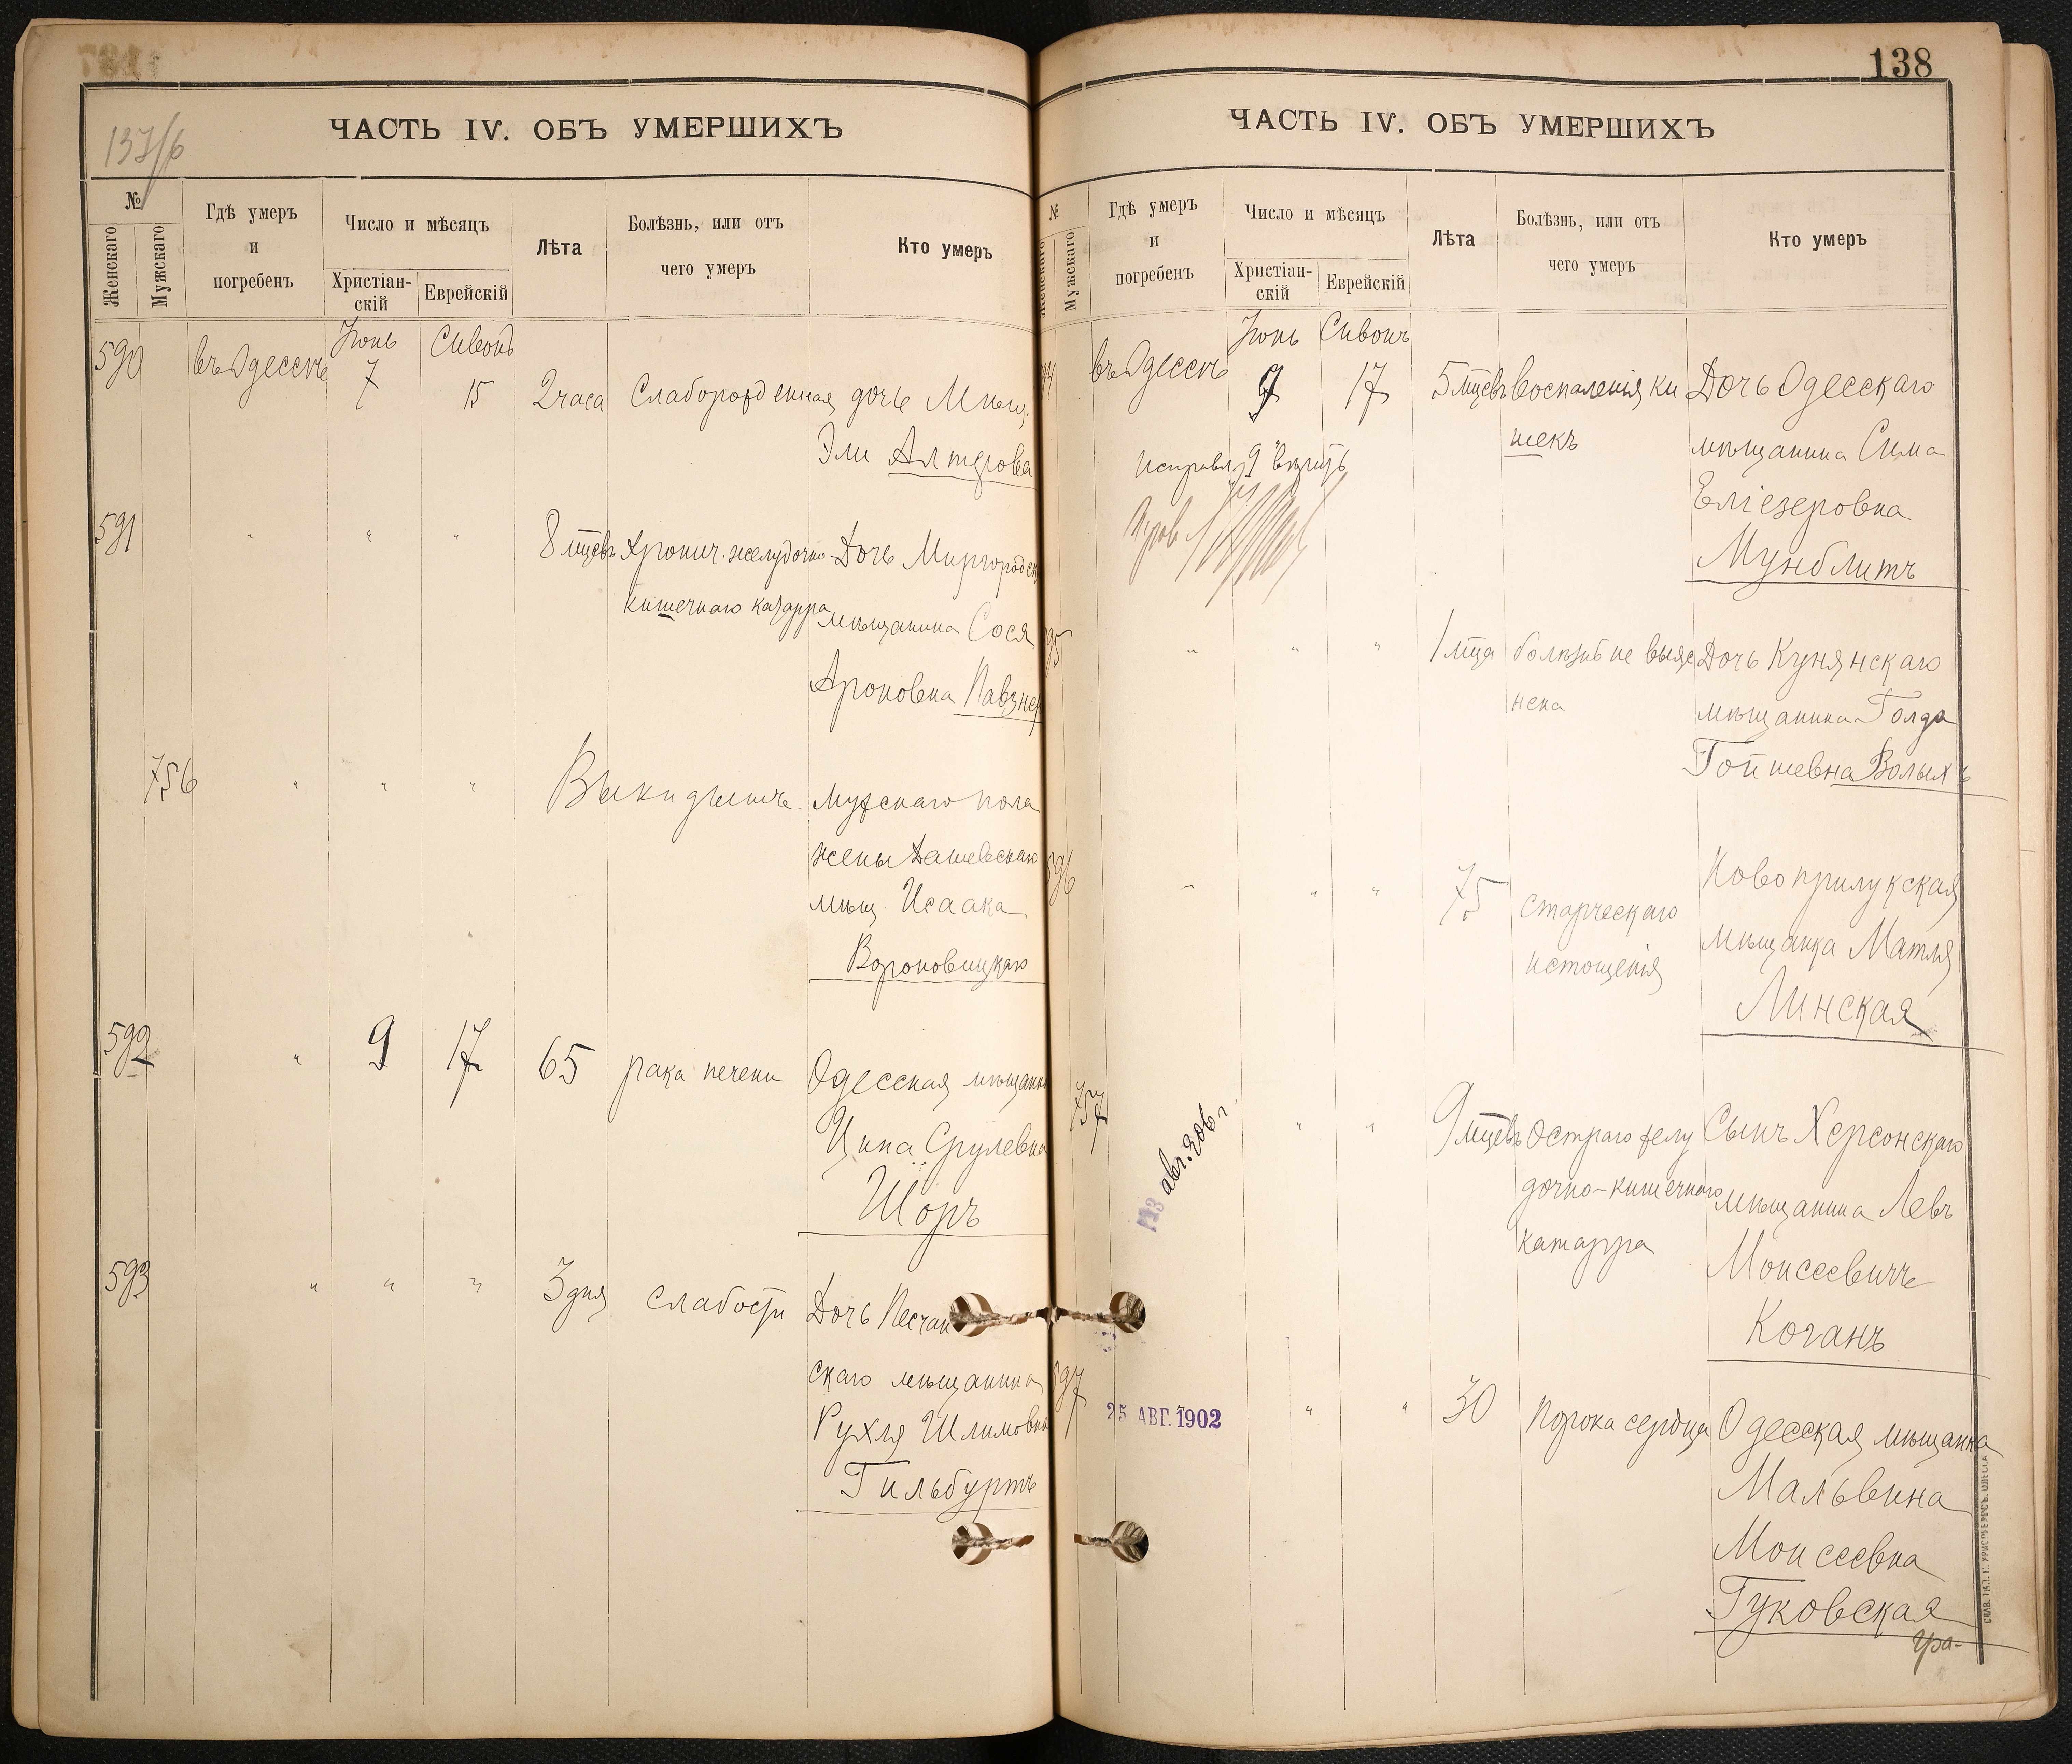 137/6
ЧАСТЬ IV. ОБЪ УМЕРШИХЪ
№
Женскаго
Мужскаго
Гдѣ умеръ
и
погребенъ
Число и мѣсяцъ
Христіан-
скій
Еврейскій
Лѣта
Болѣзнь, или отъ
чего умеръ
Кто умеръ
590 въ Одессѣ Іюнь 7 Сивонъ 15 2 часа Слаборожденная дочь Мѣщ.
Эли
591 " " " 8 мцевъ Хронич. желудочно- Дочь Миргородск
кишечнаго катарра мѣщанина Сося
Ароновна Павзнер
756 " " " Выкидышъ мужскаго пола
жены Дашевскаго
мѣщ. Исаака
Вороновицкаго
592 " 9 17 65 рака печени Одесская мѣщанка
Ципа Срулевна
Шоръ
593 " " " 3 дня слабости Дочь Песчан
скаго мѣщанина
Рухля Шлимовна
Гильбуртъ
138
ЧАСТЬ IV. ОБЪ УМЕРШИХЪ
№
Женскаго
Мужскаго
Гдѣ умеръ
и
погребенъ
Число и мѣсяцъ
Христіан-
скій
Еврейскій
Лѣта
Болѣзнь, или отъ
чего умеръ
Кто умеръ
94 въ Одессѣ Іюнь 9 Сивонъ 17 5 мцевъ Воспаленія ки Дочь Одесскаго
шекъ мѣщанина Сима
Исправл. "9" вѣрить
Еліезеровна
Мунблитъ
95 " " " 1 мца болѣзнь не выяс Дочь Купянскаго
нена мѣщанина Голда
Гойшевна Волыхъ
596 " " " 75 старческаго Новоприлукская
истощенія мѣщанка Матля
Линская
757 13 авг. 906 г. " " 9 мцевъ Остраго желу Сынъ Херсонскаго
дочно-кишечнаго мѣщанина Левъ
катарра Моисеевичъ
Коганъ
597 25 АВГ. 1902 " " 30 Порока сердца Одесская мѣщанка
Мальвина
Моисеевна
Гуковская